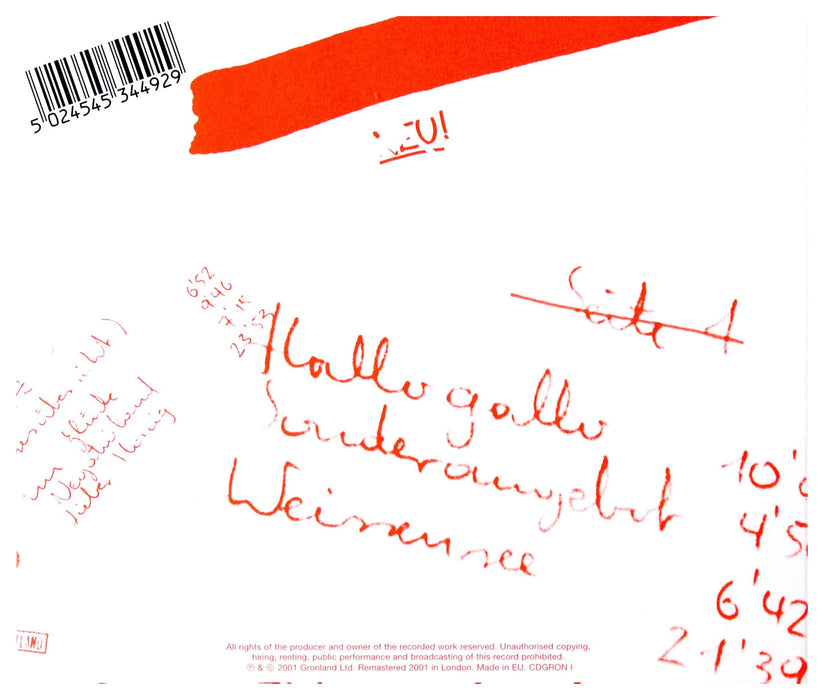 5 024545 344929
NEU!
Seite 1
6'52
9'46
7'15
23'53
Hallogallo
Sonderangebot
Weissensee
im Glücke
Negativland
Lieber Honig
10'
4'5
6'42
21'39
All rights of the producer and owner of the recorded work reserved. Unauthorised copying,
hiring, renting, public performance and broadcasting of this record prohibited.
℗ & © 2001 Gronland Ltd. Remastered 2001 in London. Made in EU. CDGRON I